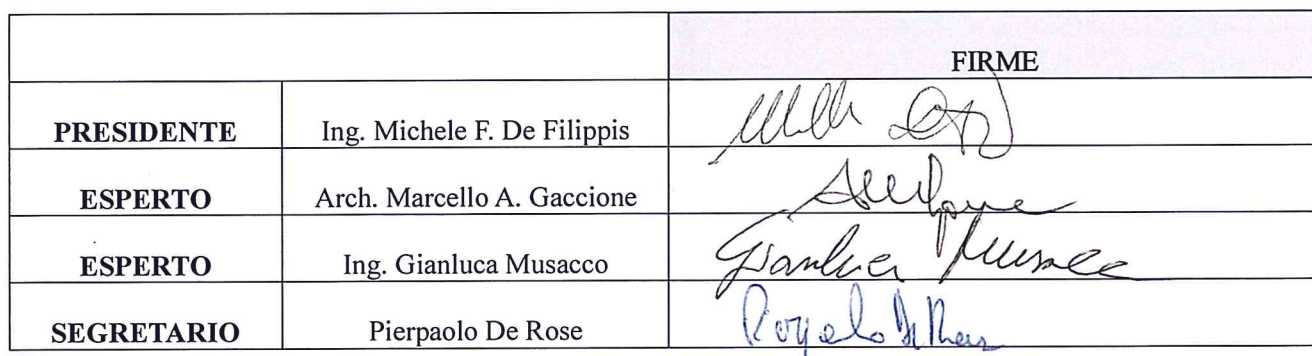 FIRME
PRESIDENTE Ing. Michele F. De Filippis
ESPERTO Arch. Marcello A. Gaccione
ESPERTO Ing. Gianluca Musacco Gianluca Musacco
SEGRETARIO Pierpaolo De Rose